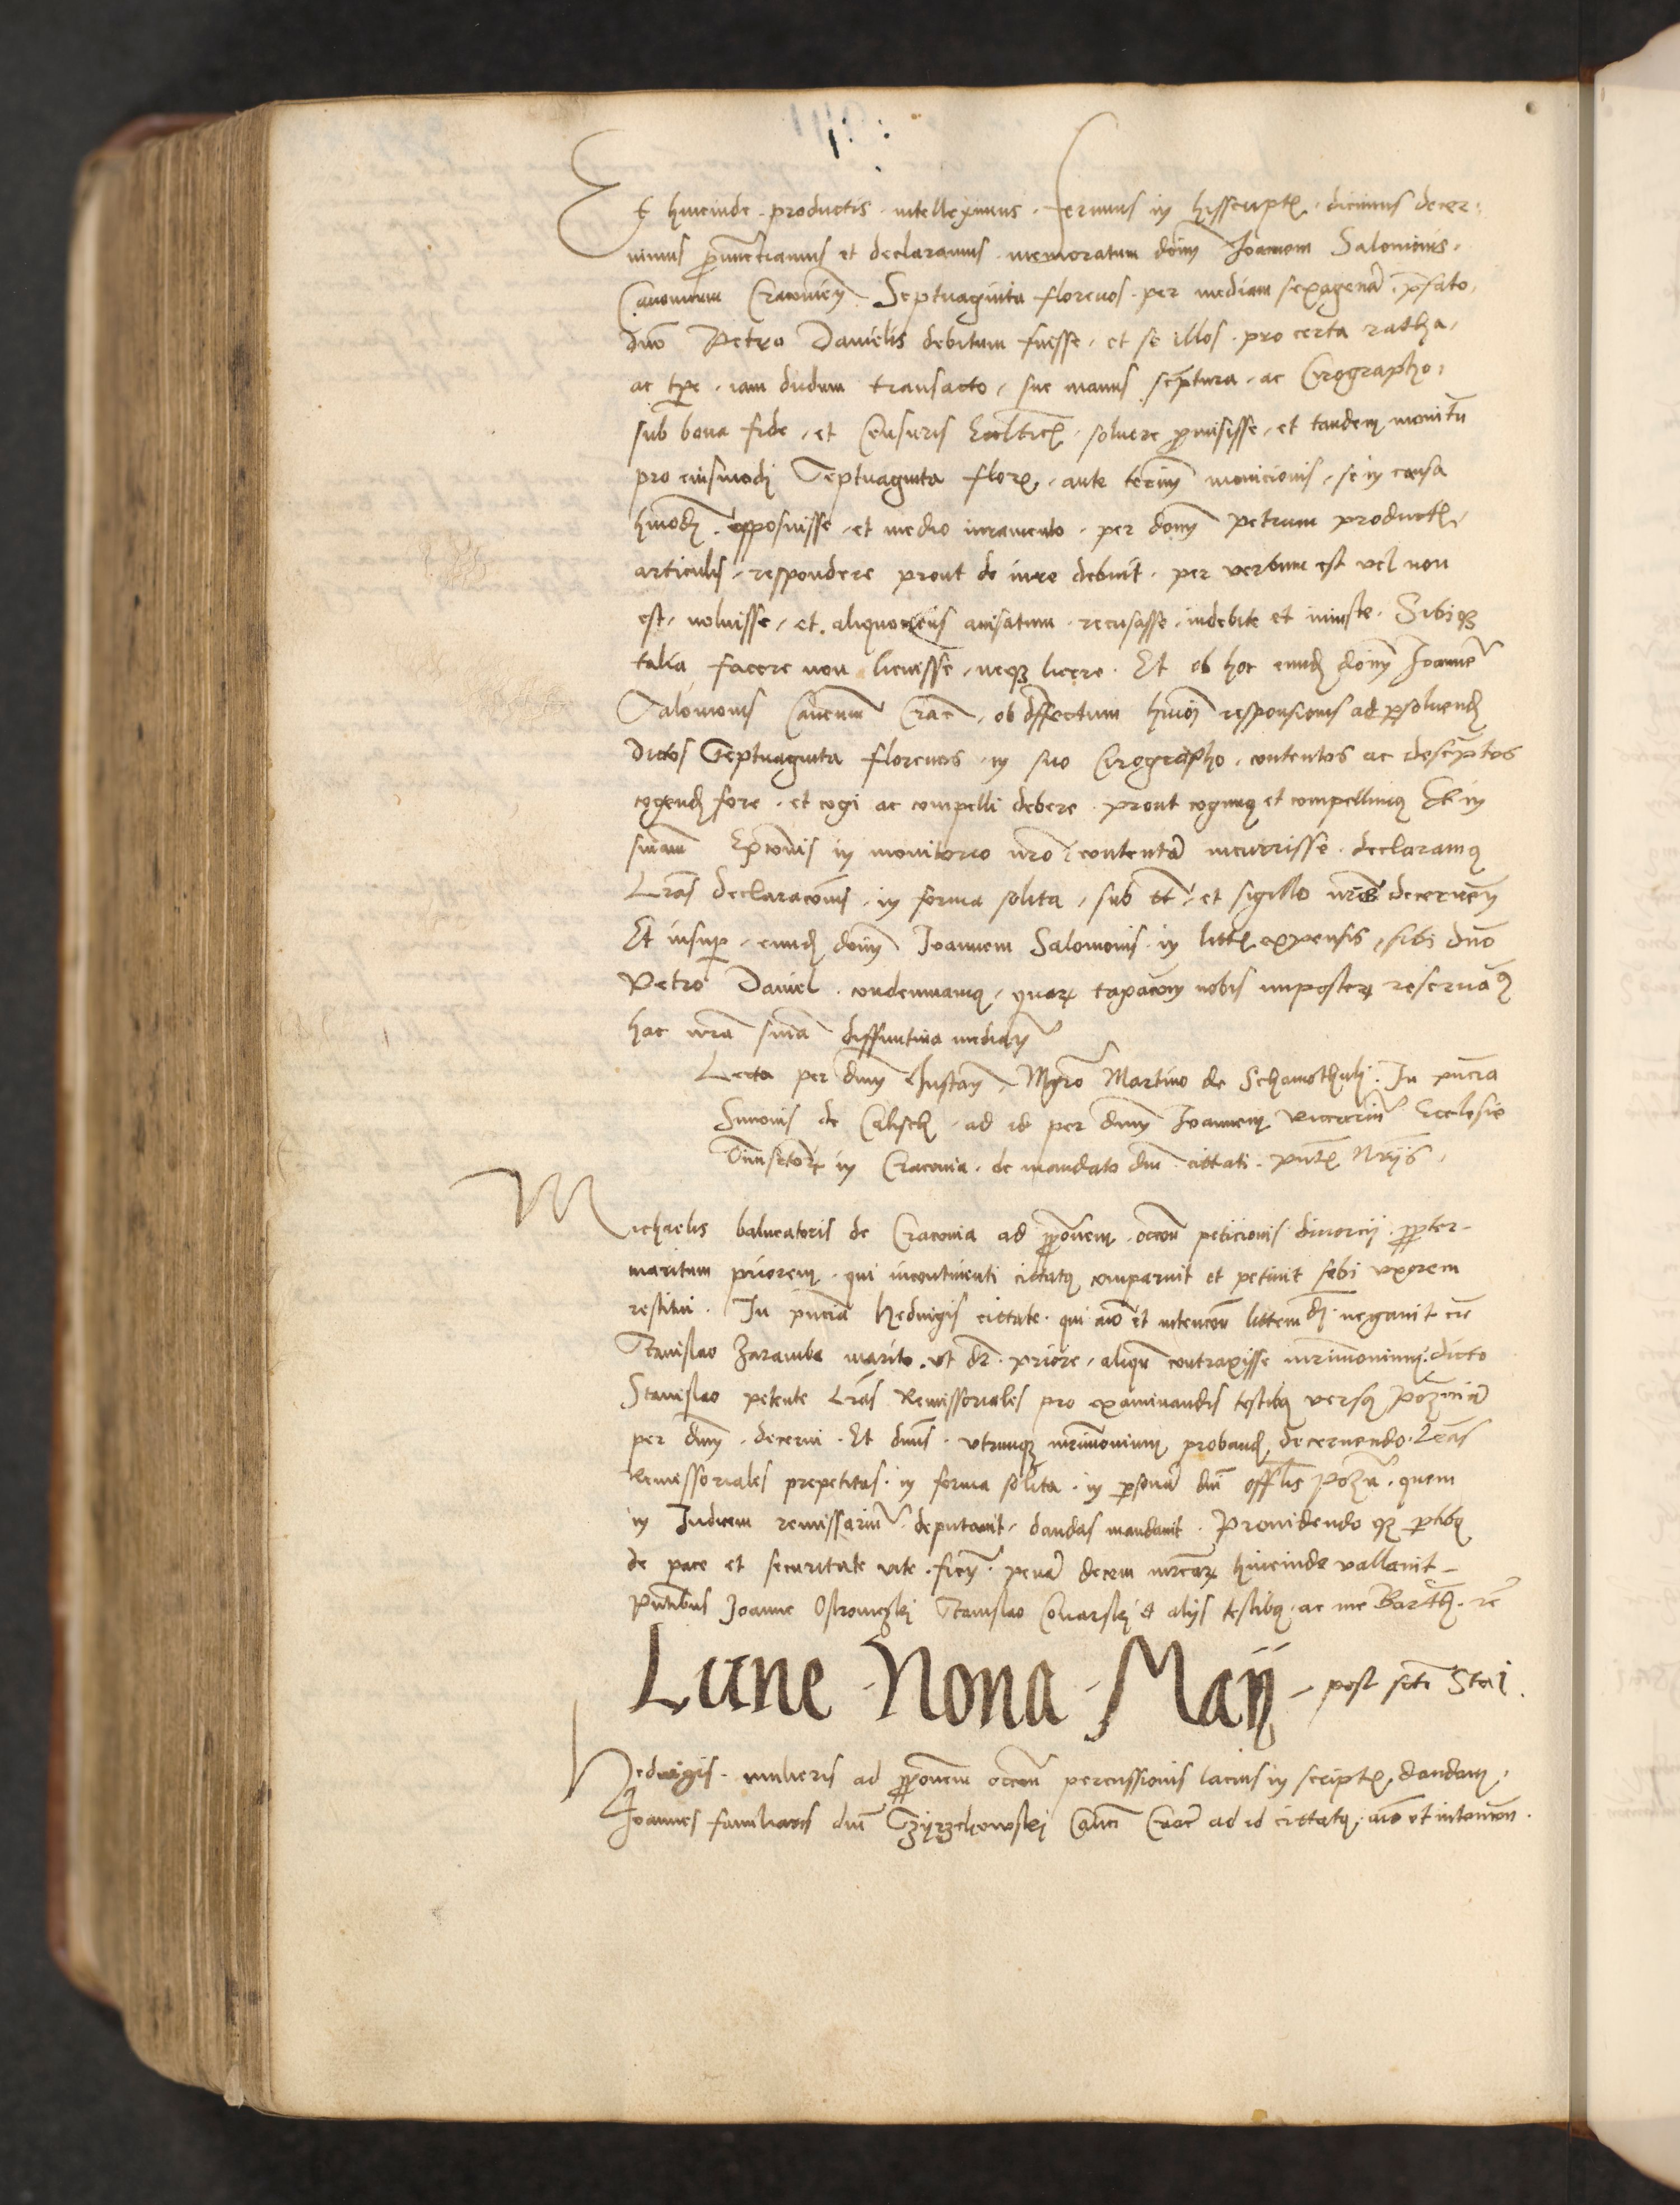 Et hincinde productis intelleximus ferimus in hisscriptis dicimus decer-
nimus pronunctiamus et declaramus memoratum dnm Joannem Salomonis
Canonicum Cracovien Septuaginta florenos per mediam sexagenā prefato
dno Petro Danielis debitum fuisse, et se illos pro certa ratha,
ac tpe iam dudum transacto, sue manus scptura ac Cirographo,
sub bona fide, et Censuris Ecclticis soluere promisisse, et tandem monitū
pro eiusmodi Septuaginta flor, ante terminū monicionis, se in causa
hmōdi opposuisse et medio iuramento per dnm Petrum productis
articulis, respondere prout de iure debuit per verbum est vel non
est, noluisse, et aliquociens auisatum recusasse indebite et iniuste. Sibiq
talia facere non licuisse, neq licere. Et ob hoc eund dnm Joannē
Salomonis Canonicū Crac, ob deffectum hmōi responsionis ad psoluend
dictos Septuaginta florenos in suo Cirographo contentos ac descriptos
cogend fore et cogi ac compelli debere prout cogimus et compellimus Et in
sniam Excōis in monitorio nro contentā incurrisse declaramus
Lras declaracōis in forma solita, sub tt et sigillo nris decernen
Et insup eund dnm Joannem Salomonis in litis expensis, sibi dno
Petro Daniel condemnamus, quar taxacōem nobis imposter reseruam
hac nra snia diffinitiua median
Lecta per dnm Instan Mgro Martino de Schamothuli. In pncia
Simonis de Calisch ad id per dnm Joannem vicecuriū Ecclesie
in Cracouia de mandato dni cittati pntis Nrijs
Michaelis balneatoris de Cracouia ad pponem occōne peticionis diuorcij ppter
maritum priorem qui incontinenti cittatus comparuit et petiuit sibi vxorem
restitui. In pncia Hedwigis cittate qui aīo et intencōne littem negauit cū
Stanislao Zaramba marito ut dr priore, aliqū contraxisse mrimonium. dicto
Stanislao petente Lras Remissoriales pro examinandis testibus versus Poznania
per dnm decerni. Et dnus vtrumq mrimonium proband decernendo Lras
Remissoriales prepetitas in forma solita in psonā dni offlis Pozn, quem
in Judicem remissariū deputauit, dandas mandauit. Prouidendo q ptibus
de pace et securitate vite penā decem mrcar hincinde vallauit
Pntibus Joanne Ostrowski Stanislao Conarski et alijs testibus ac me Barth. rē
Lune Nona Maij post scti Stai
Hedwigis mulieris ad pponem occōne percussionis lacius in scriptis, dandam,
Joannes familiaris dni Canci Crac ad id cittatus, aīo et intencōn